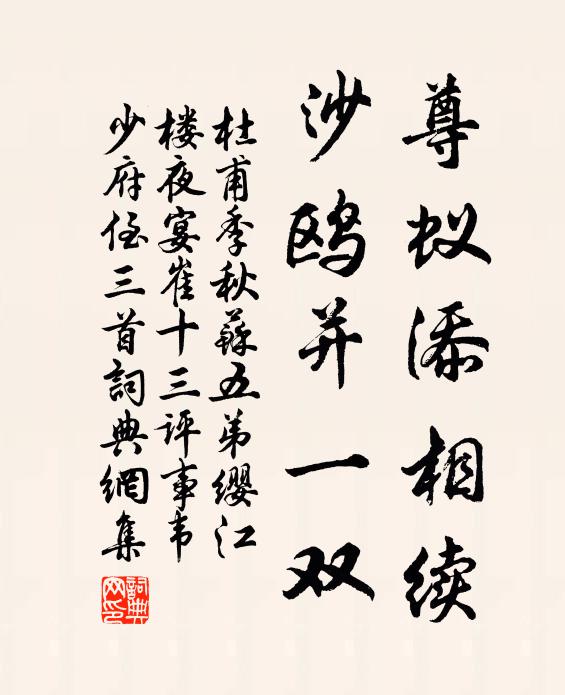 尊蚁添相续
沙鸥并一双
杜甫季秋蘇五弟缨江
楼夜宴崔十三评事韦
少府侄三首詞典網集
詞典網印